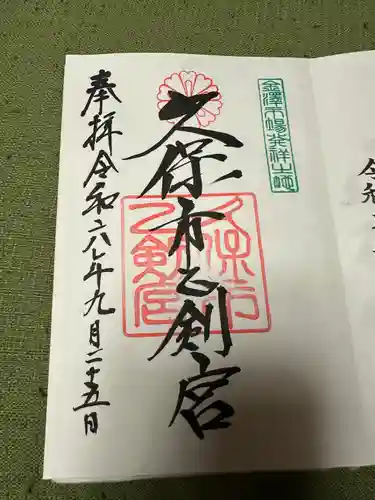 令和
金澤市場発祥之地
久保市乙剣宮
久保市
乙剣宮
奉拝令和六年九月二十五日